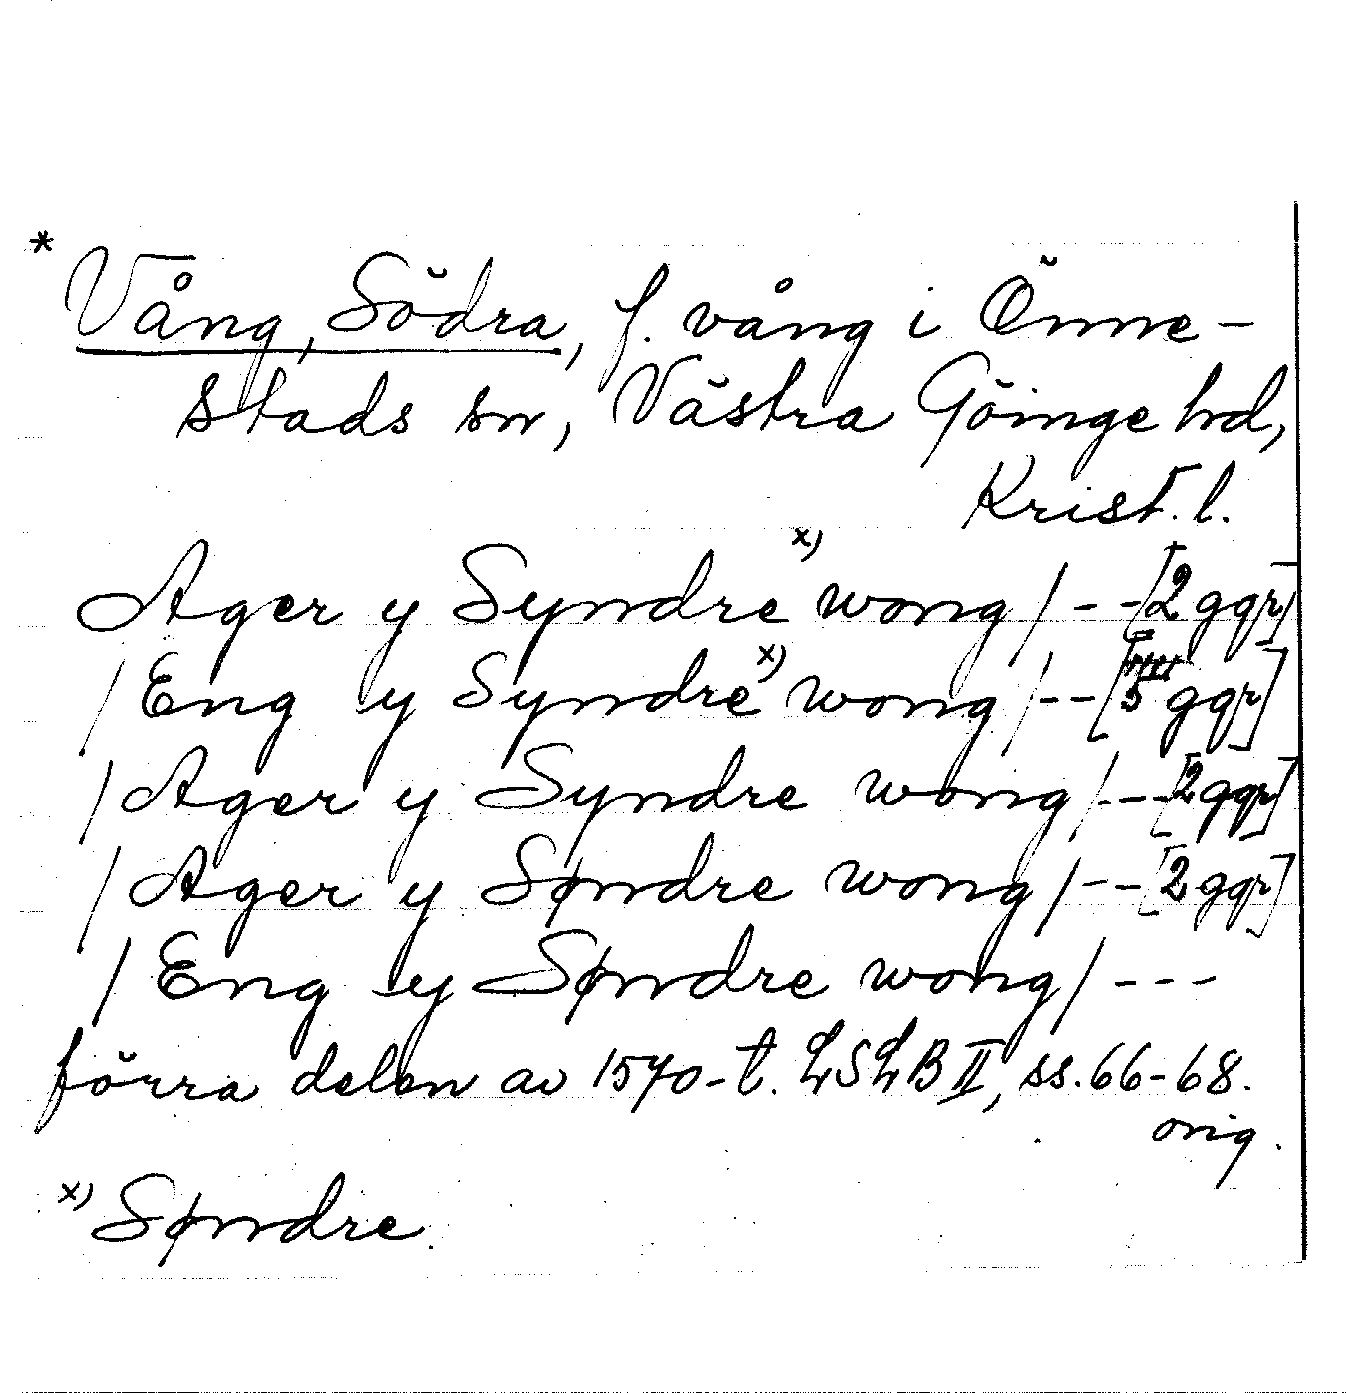 * Vång, Södra, f. vång i Önne-
stads sn, Västra Göinge hd,
Krist. l.
Ager y Syndre x) wong/ -- [2 ggr]
/Eng y Syndre x) wong/ -- [5 ggr]
/Ager y Syndre wong/ -- [2 ggr]
/Ager y Søndre wong/ -- [2 ggr]
/Eng y Søndre wong/ ---
förra delen av 1570-t. LSLB II, ss. 66-68.
orig.
x) Søndre.